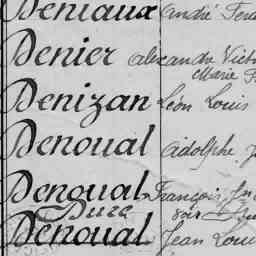 Deniaux André
Denier Alexandre Victo
Marie
Denizan Léon Louis
Denoual Adolphe
Denoual François
Dure voir
Denoual Jean Loui